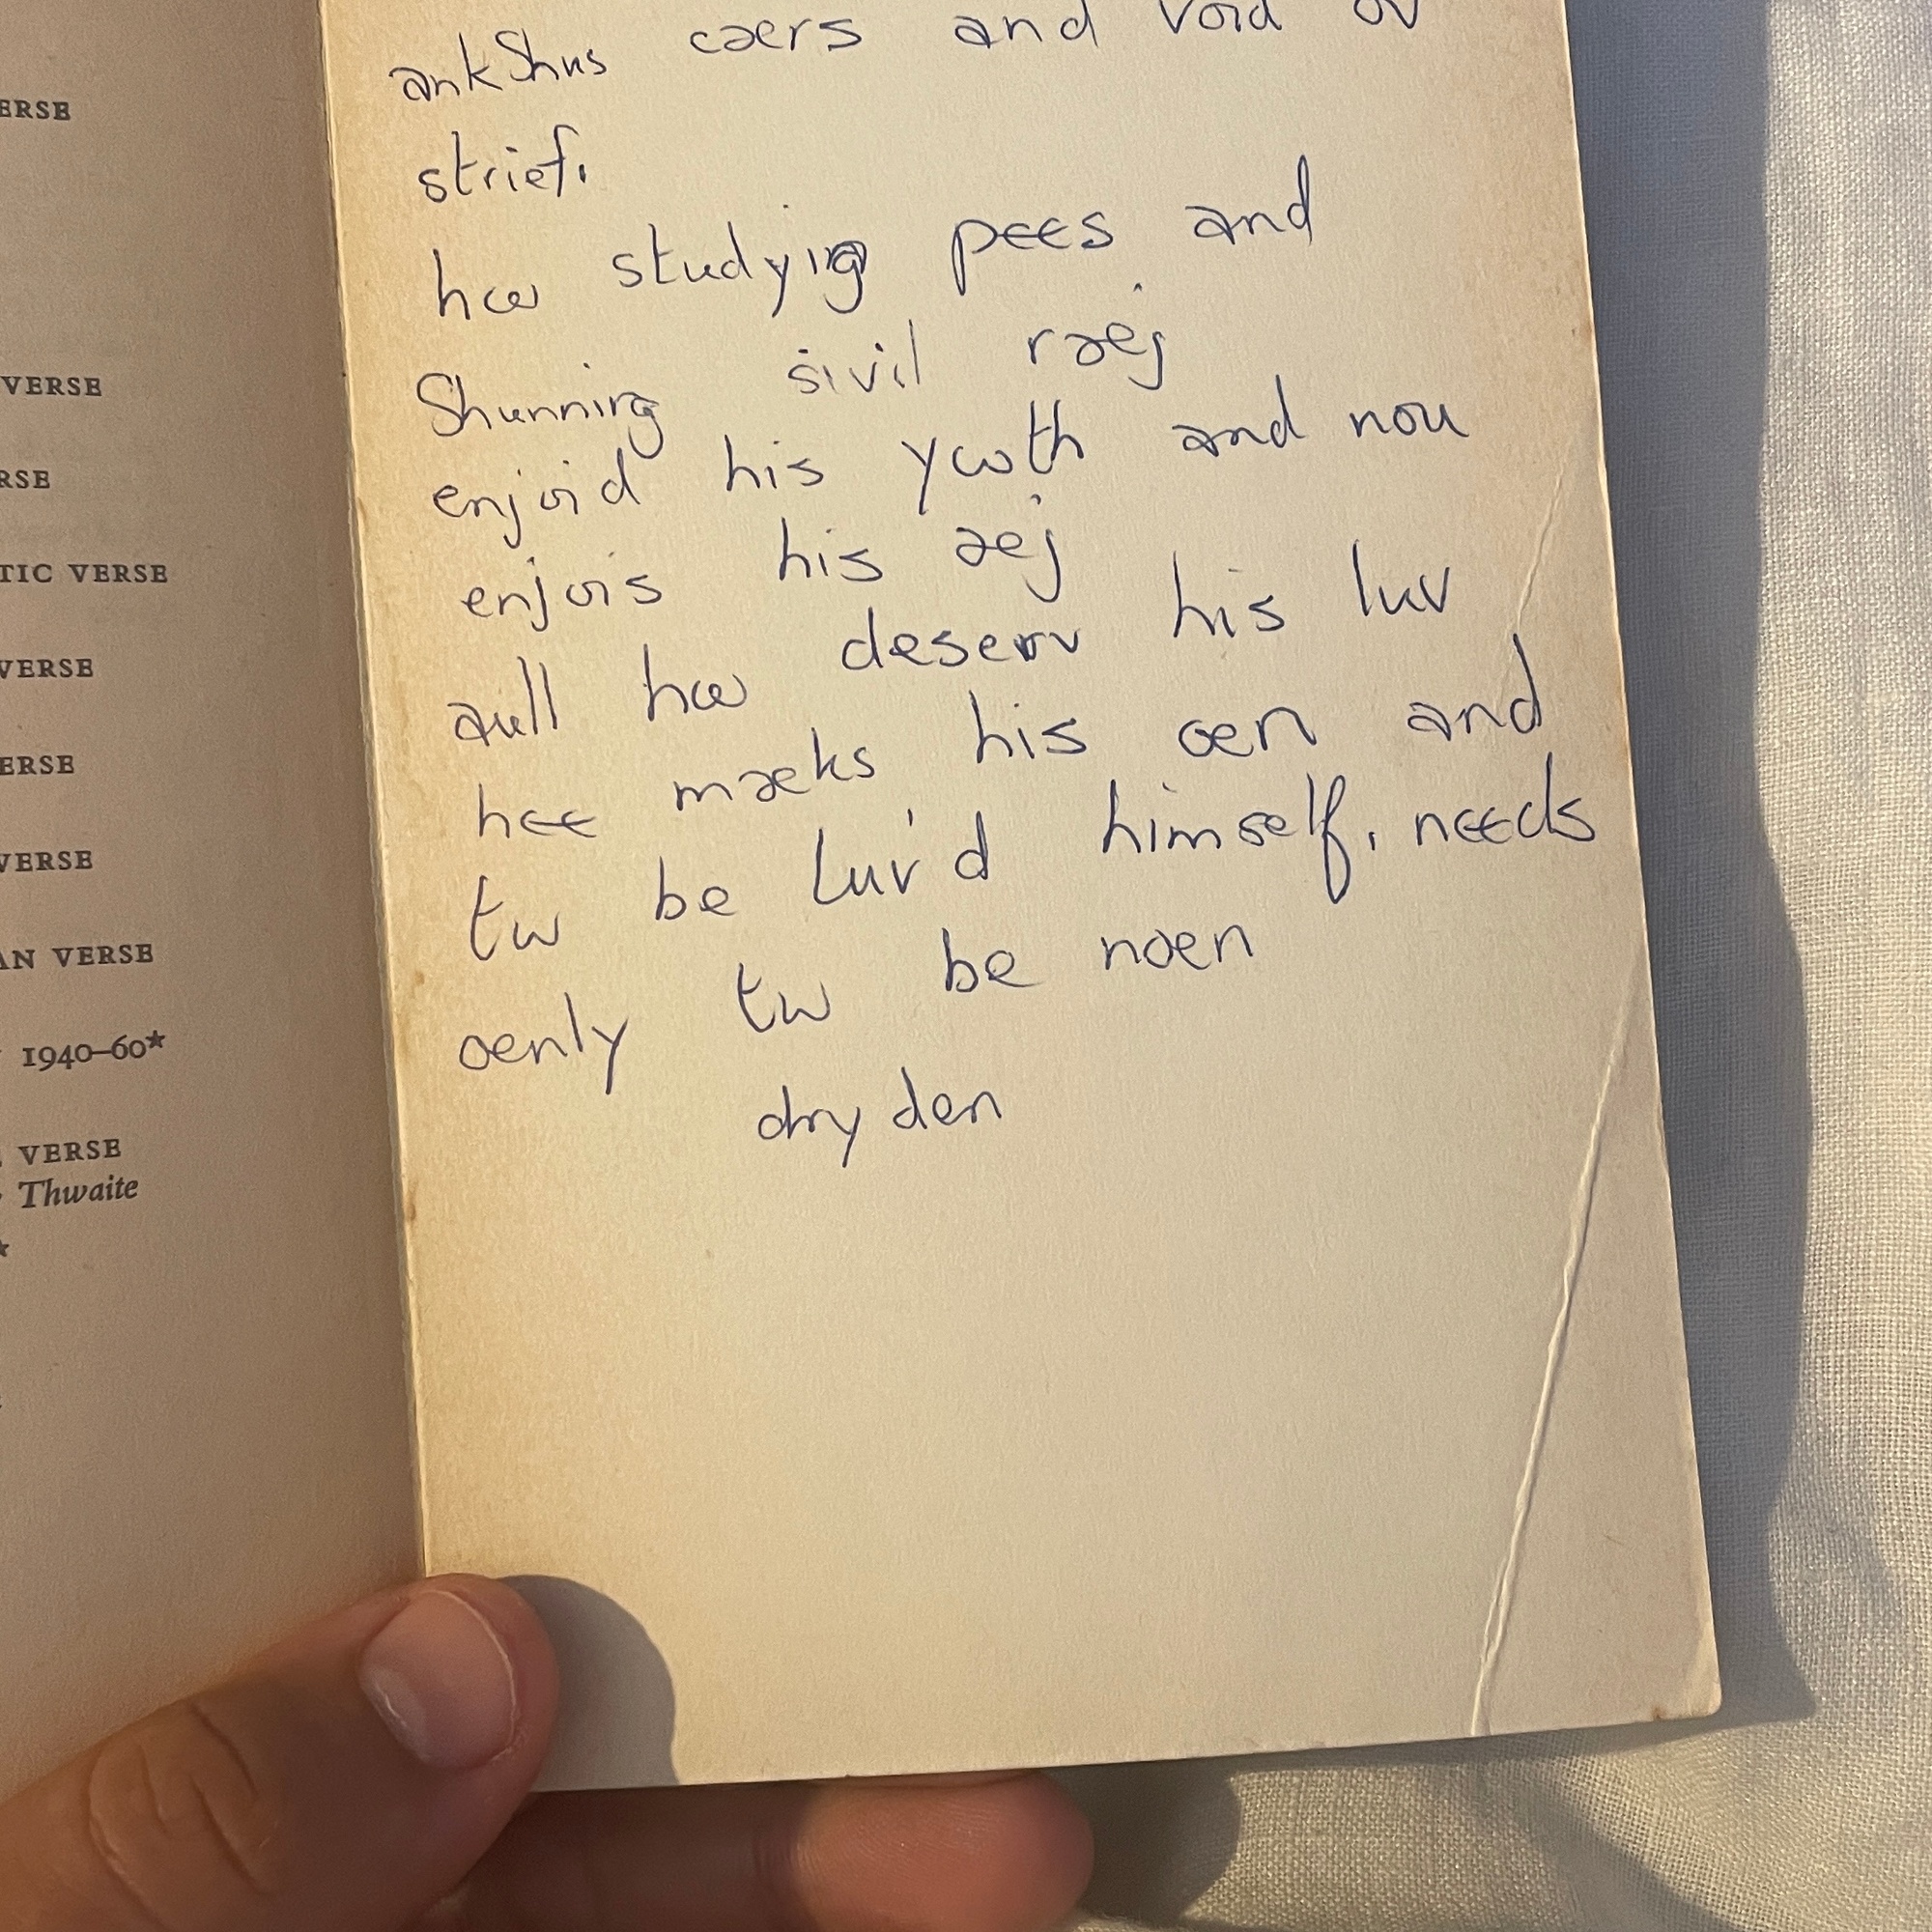 ERSE
VERSE
RSE
TIC VERSE
VERSE
ERSE
VERSE
AN VERSE
1940–60*
VERSE
Thwaite
ankShus caers and void ov
strief.
hω studying pees and
Shunning sivil raej
enjoid his yωth and nou
enjois his aej
aull hω deserv his luv
hee maeks his oen and
tω be luv'd himself, needs
oenly tω be noen
dryden